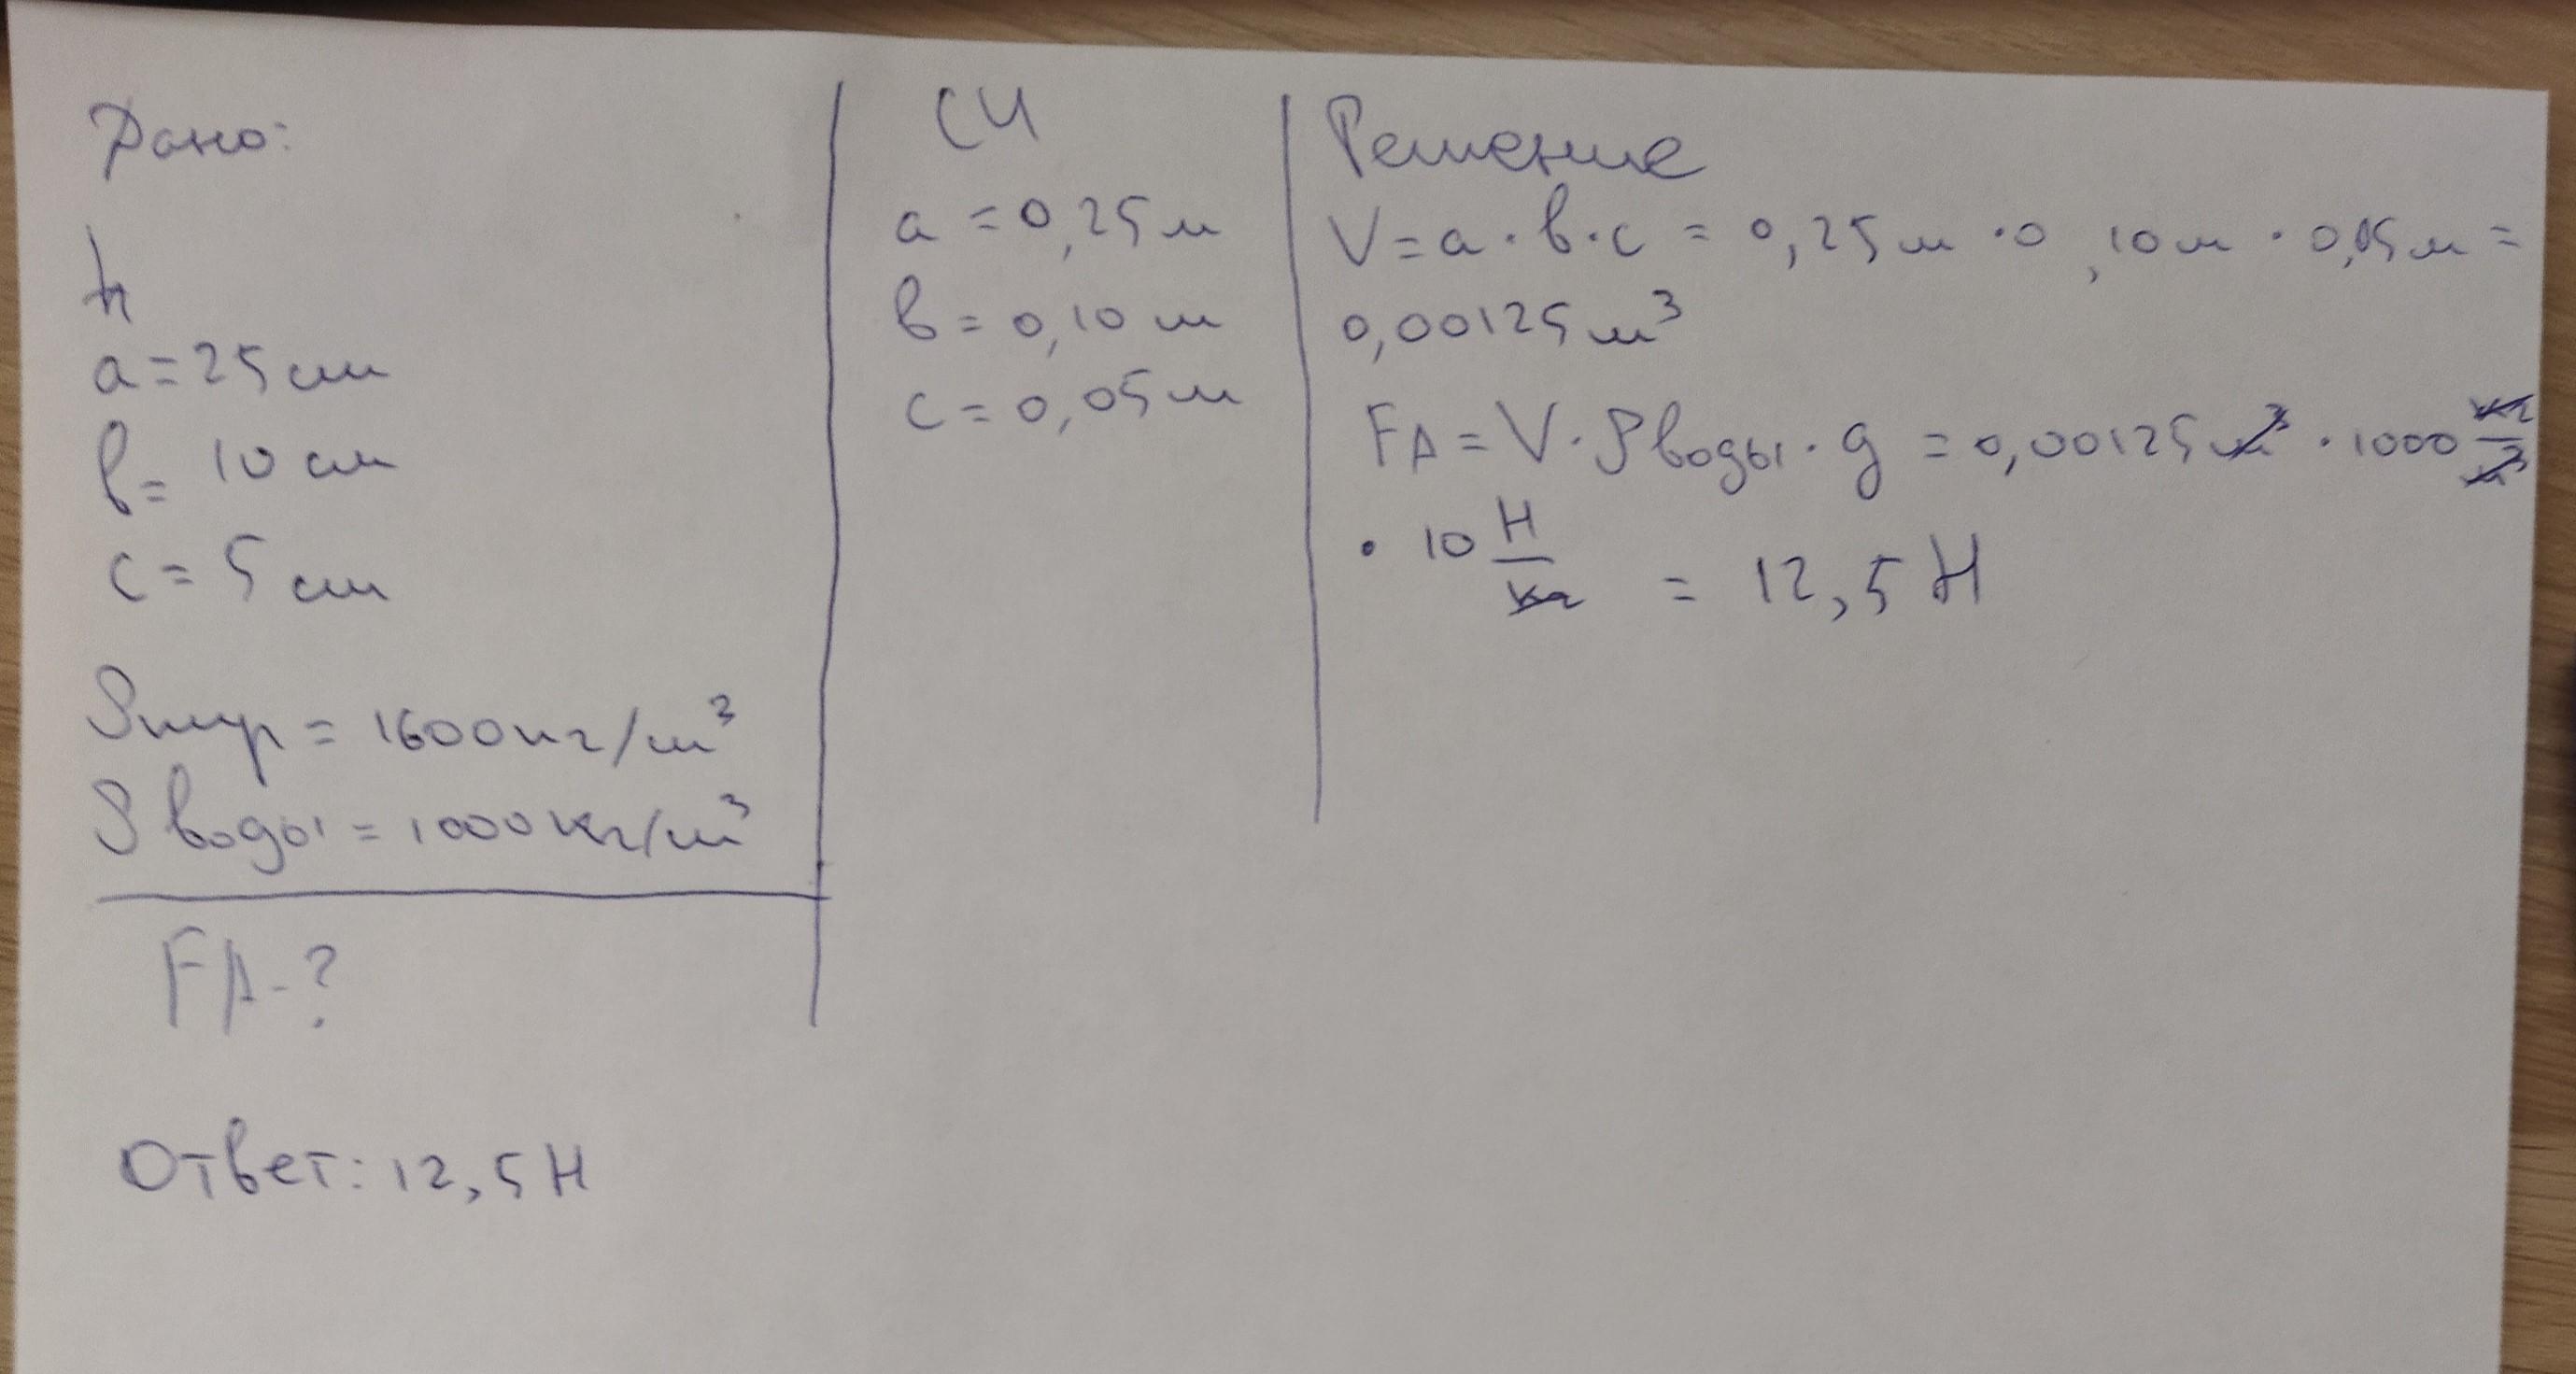 Дано:
h
a = 25 см
b = 10 см
c = 5 см
ρкир = 1600 кг/м³
ρ воды = 1000 кг/м³
FA - ?
Ответ: 12,5 Н
СИ
a = 0,25 м
b = 0,10 м
c = 0,05 м
Решение
V = a · b · c = 0,25 м · 0,10 м · 0,05 м =
0,00125 м³
FA = V · ρ воды · g = 0,00125 м³ · 1000 кг/м³
· 10 Н/кг = 12,5 Н